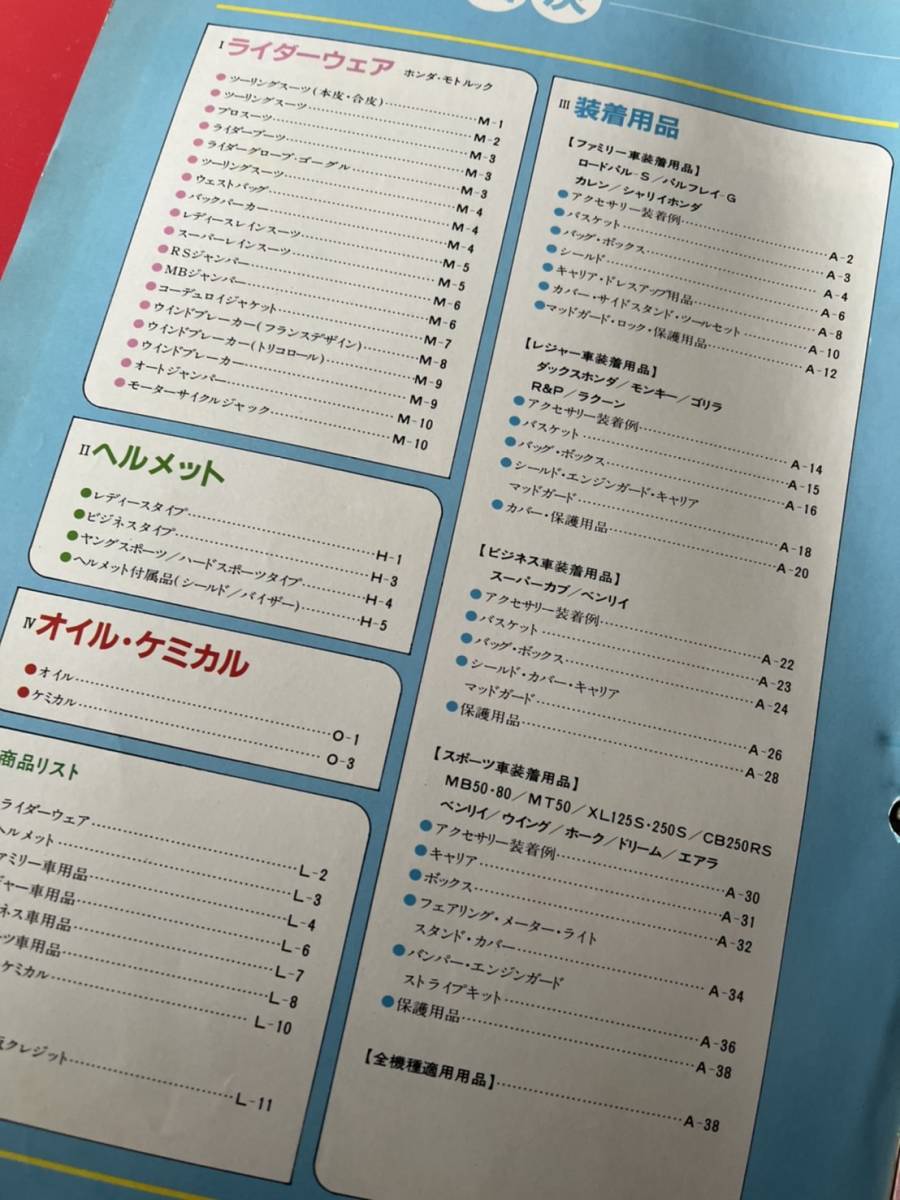 次
I ライダーウェア ホンダ・モトルック
●ツーリングスーツ(本皮・合皮)……M-1
●ツーリングスーツ……M-2
●プロスーツ……M-3
●ライダーブーツ……M-3
●ライダーグローブ・ゴーグル……M-3
●ツーリングスーツ……M-4
●ウェストバッグ……M-4
●バックパーカー……M-4
●レディースレインスーツ……M-5
●スーパーレインスーツ……M-5
●RSジャンパー……M-6
●MBジャンパー……M-6
●コーデュロイジャケット……M-7
●ウインドブレーカー(フランスデザイン)……M-8
●ウインドブレーカー(トリコロール)……M-9
●ウインドブレーカー……M-9
●オートジャンパー……M-10
●モーターサイクルジャック……M-10
II ヘルメット
●レディースタイプ……H-1
●ビジネスタイプ……H-3
●ヤングスポーツ/ハードスポーツタイプ……H-4
●ヘルメット付属品(シールド/バイザー)……H-5
IV オイル・ケミカル
●オイル……O-1
●ケミカル……O-3
商品リスト
ライダーウェア……L-2
ヘルメット……L-3
ァミリー車用品……L-4
ジャー車用品……L-6
ネス車用品……L-7
ツ車用品……L-8
ケミカル……L-10
クレジット……L-11
III 装着用品
【ファミリー車装着用品】
ロードパル-S/パルフレイ-G
カレン/シャリイホンダ
●アクセサリー装着例……A-2
●バスケット……A-3
●バッグ・ボックス……A-4
●シールド……A-6
●キャリア・ドレスアップ用品……A-8
●カバー・サイドスタンド・ツールセット……A-10
●マッドガード・ロック・保護用品……A-12
【レジャー車装着用品】
ダックスホンダ/モンキー/ゴリラ
R&P/ラクーン
●アクセサリー装着例……A-14
●バスケット……A-15
●バッグ・ボックス……A-16
●シールド・エンジンガード・キャリア
マッドガード……A-18
●カバー・保護用品……A-20
【ビジネス車装着用品】
スーパーカブ/ベンリイ
●アクセサリー装着例……A-22
●バスケット……A-23
●バッグ・ボックス……A-24
●シールド・カバー・キャリア
マッドガード……A-26
●保護用品……A-28
【スポーツ車装着用品】
MB50・80/MT50/XL125S・250S/CB250RS
ベンリイ/ウイング/ホーク/ドリーム/エアラ
●アクセサリー装着例……A-30
●キャリア……A-31
●ボックス……A-32
●フェアリング・メーター・ライト
スタンド・カバー……A-34
●バンパー・エンジンガード
ストライプキット……A-36
●保護用品……A-38
【全機種適用用品】……A-38